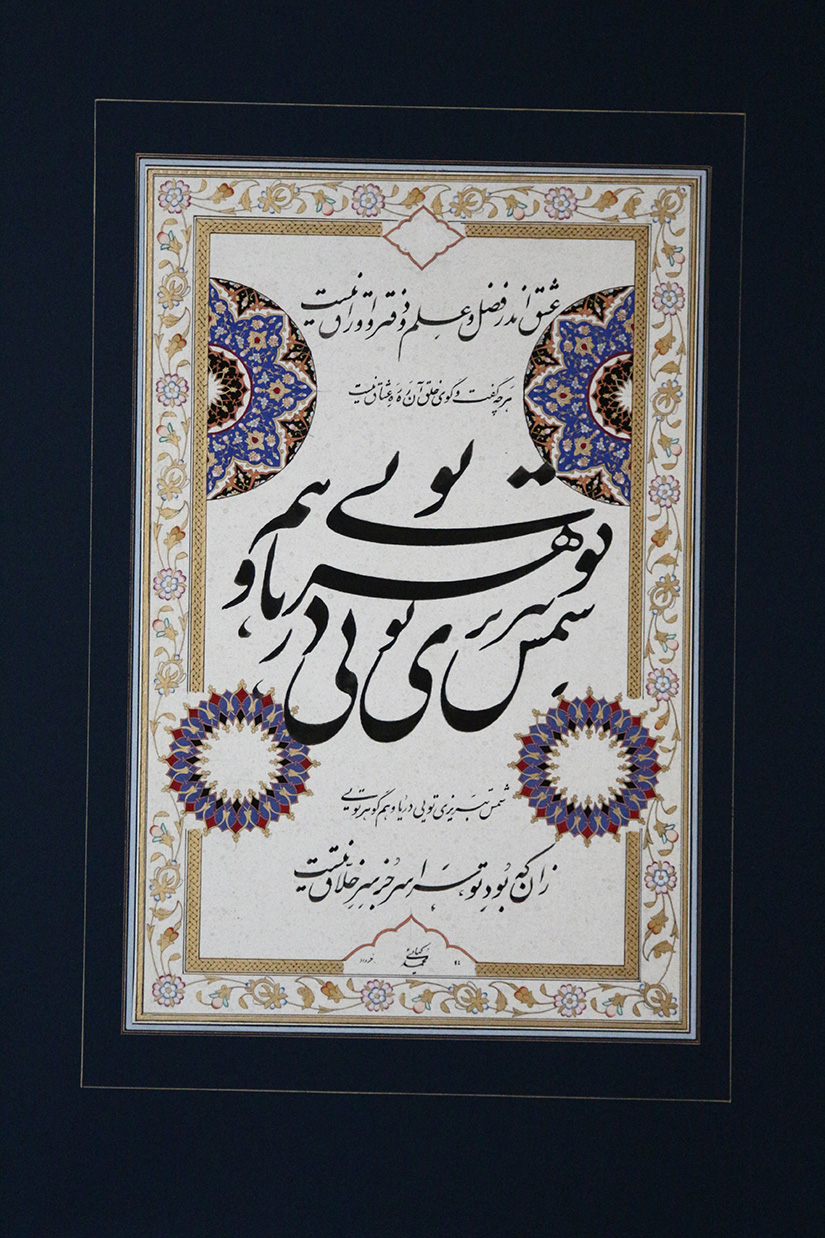 عشق اندر فضل و علم و دفتر و اوراق نیست
هر چه گفت و گوی خلق آن ره ره عشاق نیست
شمس تبریزی تویی دریا و هم گوهر تویی
شمس تبریزی تویی دریا و هم گوهر تویی
زان که بود تو سراسر جز سر خلاق نیست